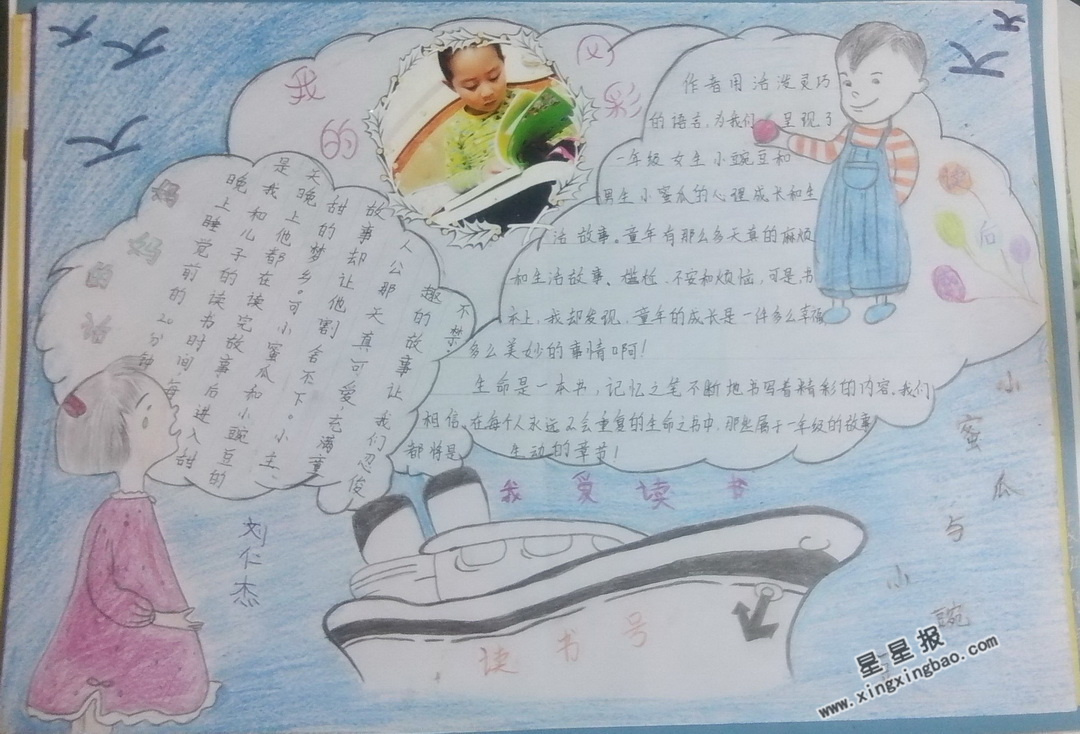 我的风彩
妈妈的话
晚上睡觉前的20分钟,
是我和儿子的读书时间,每
天晚上他都在读完故事后进入甜
甜的梦乡。可小蜜瓜和小豌豆的
故事却让他割舍不下。小主
人公那天真可爱,充满童
趣的故事让我们忍俊
不禁
作者用活泼灵巧
的语言,为我们呈现了
一年级女生小豌豆和
男生小蜜瓜的心理成长和生
活故事。童年有那么多天真的麻烦
和生活故事、尴尬、不安和烦恼,可是,书
本上,我却发现,童年的成长是一件多么幸福
多么美妙的事情啊!
生命是一本书,记忆之笔不断地书写着精彩的内容。我们
相信,在每个人永远不会重复的生命之书中,那些属于一年级的故事
都将是 生动的章节!
读后
我爱读书
刘仁杰
读书号
小蜜瓜与小豌
星星报
www.xingxingbao.com